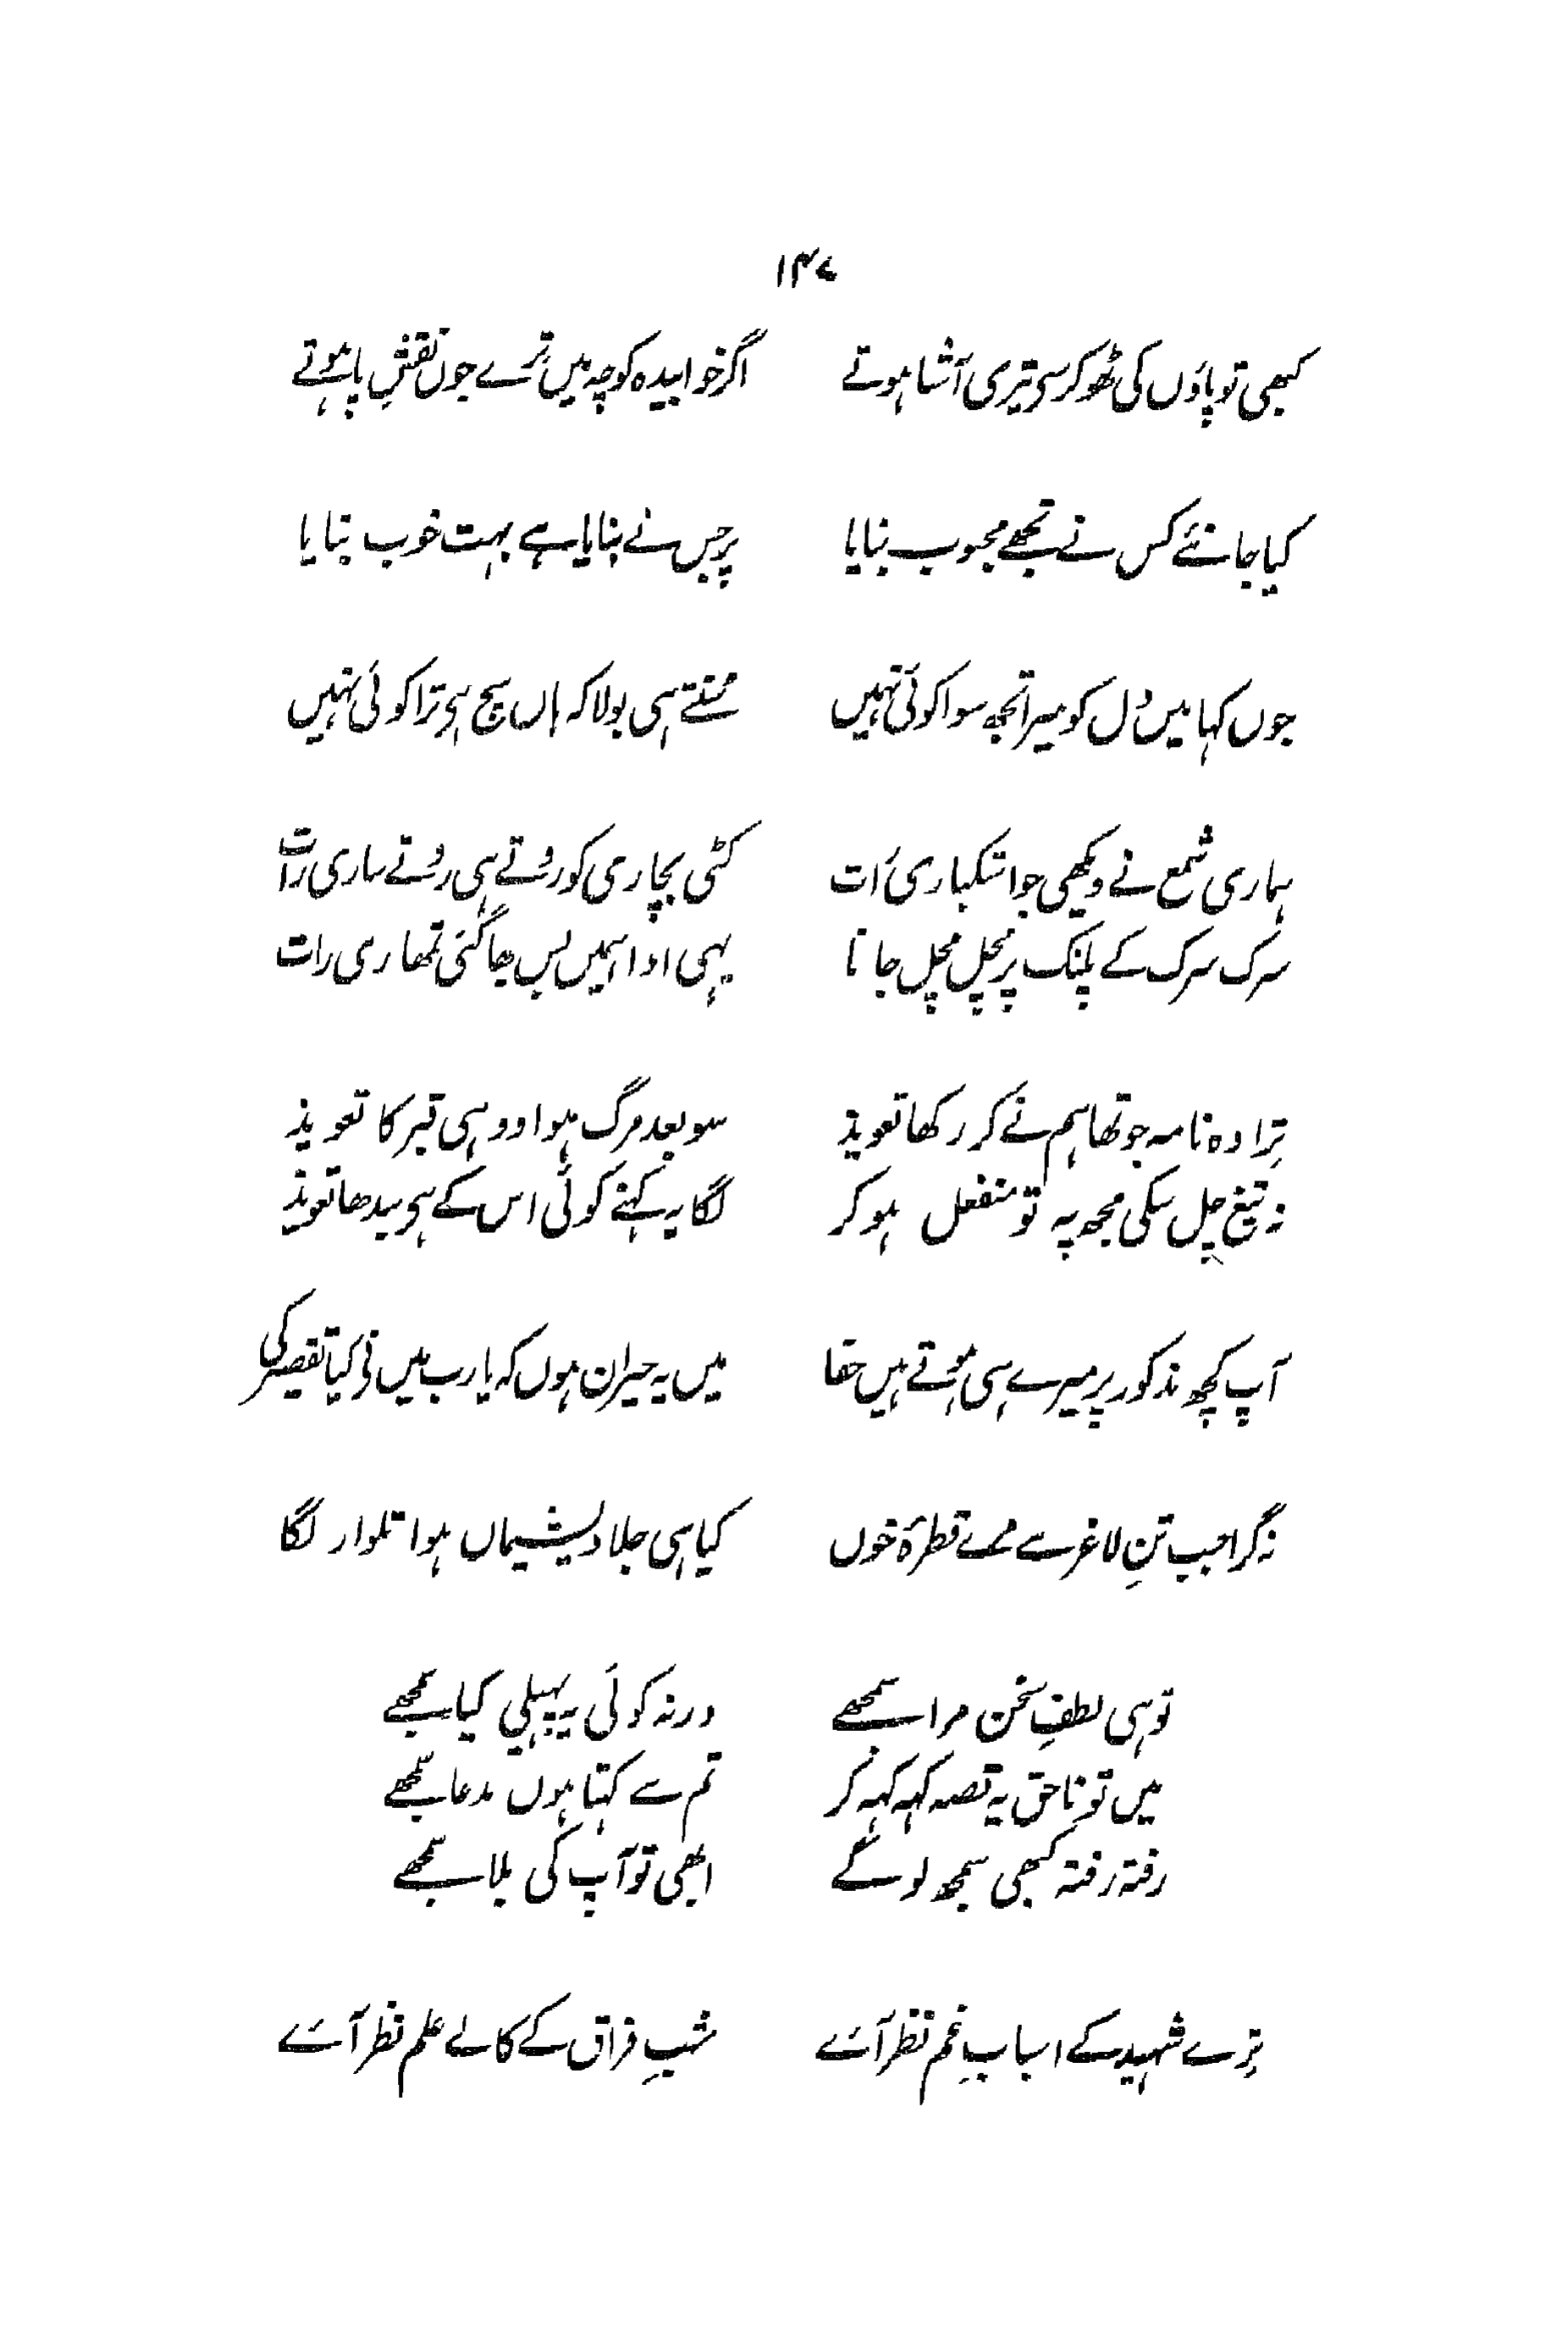 ۱۴۷
کبھی تو پاؤں کی ٹھوکر سی تیری آشنا ہوتے اگر خوابیدہ کوچہ میں ترے جوں نقشِ پا ہوتے
کیا جانئے کس نے تجھے محبوب بنایا پر جس نے بنایا ہے بہت خوب بنایا
جوں کہا میں دل کو میرا تجھ سوا کوئی نہیں سنتے ہی بولا کہ ہاں سچ ہی ترا کوئی نہیں
ہماری شمع نے دیکھی جو اشکباری رات کٹی بچاری کو روتے ہی روتے ساری رات
سرک سرک کے پلنگ پر مچل مچل جانا یہی ادا ہمیں بس بھا گئی تمھاری رات
ترا وہ نامہ جو تھا ہم نے کر رکھا تعویذ سو بعد مرگ ہوا دو ہی قبر کا تعویذ
نہ تیغ چل سکی مجھ پہ تو منفعل ہو کر لگا یہ کہنے کوئی اس کے ہی بندھا تعویذ
آپ کچھ مذکور پر میرے ہی ہوتے ہیں خفا میں یہ حیران ہوں کہ یارب میں نی کیا تقصیر کی
نہ گرا جب تنِ لاغر سے مرے قطرۂ خوں کیا ہی جلاد پشیماں ہوا تلوار لگا
تو ہی لطفِ سخن مرا سمجھے ورنہ کوئی یہ پہیلی کیا سمجھے
میں تو ناحق یہ قصہ کہہ کہہ کر تم سے کہتا ہوں مدعا سمجھے
رفتہ رفتہ کبھی سمجھ لو گے ابھی تو آپ کی بلا سمجھے
ترے شہید کے اسبابِ غم نظر آئے شبِ فراق کے کالے علم نظر آئے